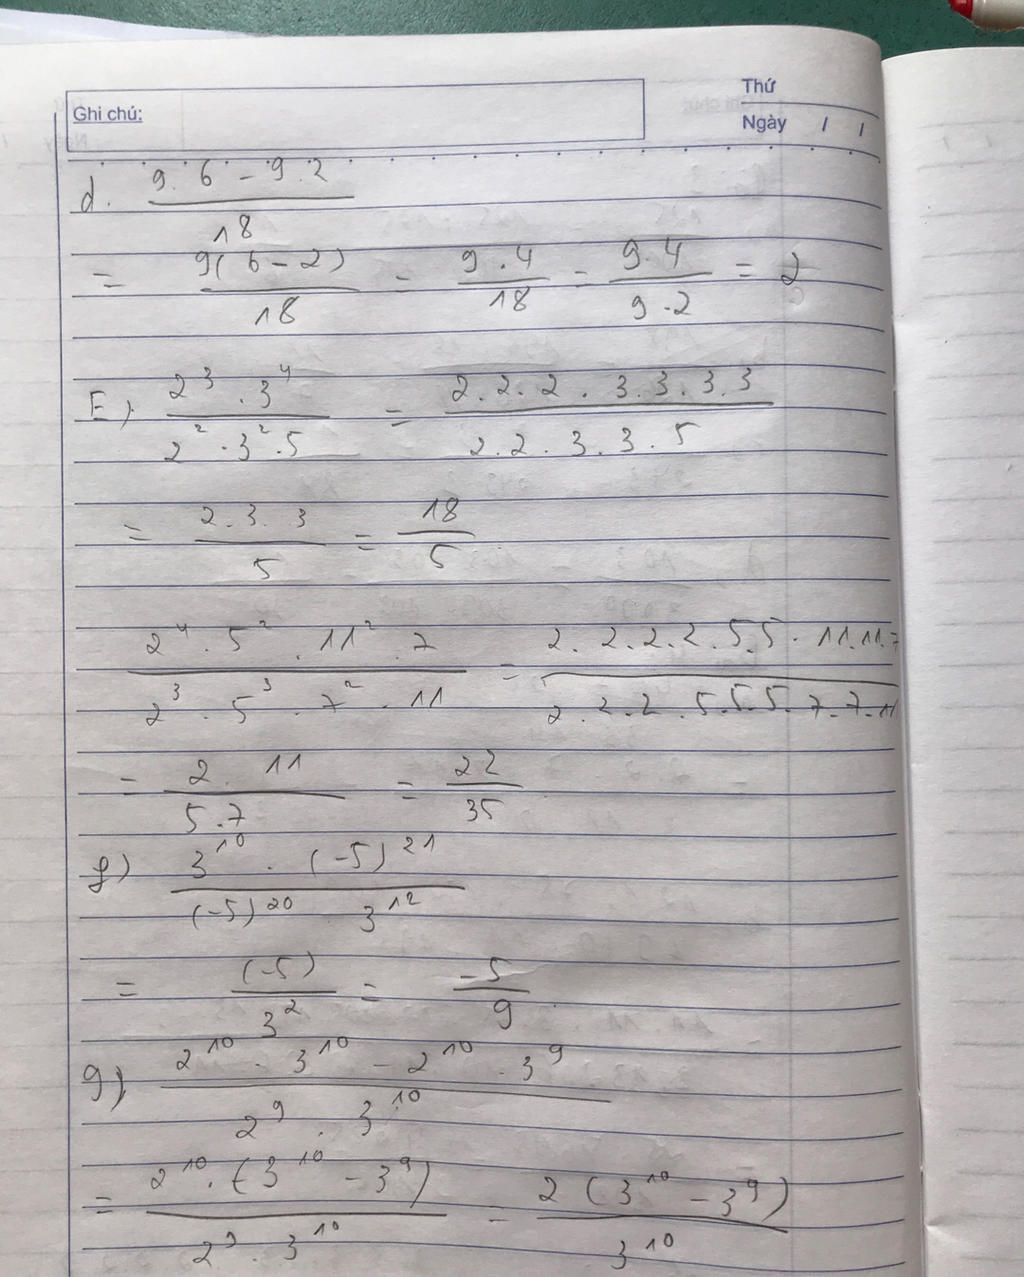 Thứ
Ghi chú:
Ngày / /
d. (9.6 - 9.2)/18
= 9(6-2)/18 = 9.4/18 = 9.4/9.2 = 2
E) 2³.3⁴/2².3².5 = 2.2.2.3.3.3.3/2.2.3.3.5
= 2.3.3/5 = 18/5
2⁴.5².11².7/2³.5³.7².11 = 2.2.2.2.5.5.11.11.7/2.2.2.5.5.5.7.7.11
= 2.11/5.7 = 22/35
f) 3¹⁰.(-5)²¹/(-5)²⁰ 3¹²
= (-5)/3² = -5/9
g) 2¹⁰.3¹⁰ - 2¹⁰.3⁹/2⁹.3¹⁰
= 2¹⁰.(3¹⁰ - 3⁹)/2⁹.3¹⁰ = 2(3¹⁰ - 3⁹)/3¹⁰